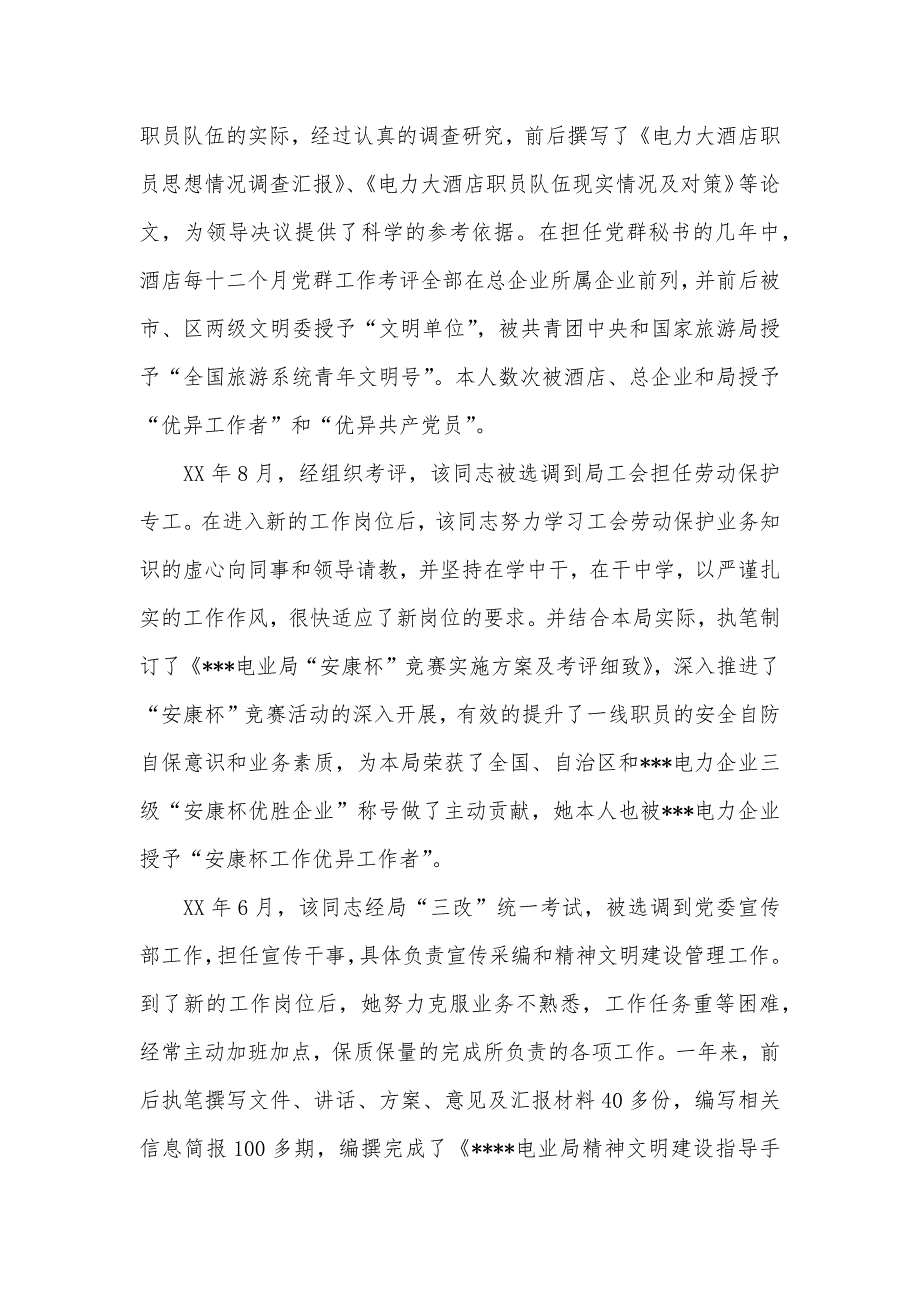 职员队伍的实际，经过认真的调查研究，前后撰写了《电力大酒店职
员思想情况调查汇报》、《电力大酒店职员队伍现实情况及对策》等论
文，为领导决议提供了科学的参考依据。在担任党群秘书的几年中，
酒店每十二个月党群工作考评全部在总企业所属企业前列，并前后被
市、区两级文明委授予“文明单位”，被共青团中央和国家旅游局授
予“全国旅游系统青年文明号”。本人数次被酒店、总企业和局授予
“优异工作者”和“优异共产党员”。
XX 年 8 月，经组织考评，该同志被选调到局工会担任劳动保护
专工。在进入新的工作岗位后，该同志努力学习工会劳动保护业务知
识的虚心向同事和领导请教，并坚持在学中干，在干中学，以严谨扎
实的工作作风，很快适应了新岗位的要求。并结合本局实际，执笔制
订了《***电业局“安康杯”竞赛实施方案及考评细致》，深入推进了
“安康杯”竞赛活动的深入开展，有效的提升了一线职员的安全自防
自保意识和业务素质，为本局荣获了全国、自治区和***电力企业三
级“安康杯优胜企业”称号做了主动贡献，她本人也被***电力企业
授予“安康杯工作优异工作者”。
XX 年 6 月，该同志经局“三改”统一考试，被选调到党委宣传
部工作，担任宣传干事，具体负责宣传采编和精神文明建设管理工作。
到了新的工作岗位后，她努力克服业务不熟悉，工作任务重等困难，
经常主动加班加点，保质保量的完成所负责的各项工作。一年来，前
后执笔撰写文件、讲话、方案、意见及汇报材料 40 多份，编写相关
信息简报 100 多期，编撰完成了《****电业局精神文明建设指导手